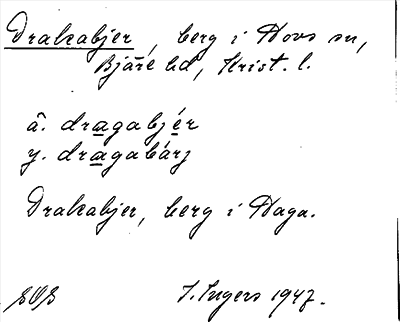 Drakabjer, berg i Hovs sn,
Bjäre hd, Krist. l.
ä. dragabjér
y. dragabárj
Drakabjer, berg i Haga.
I. Ingers 1947.